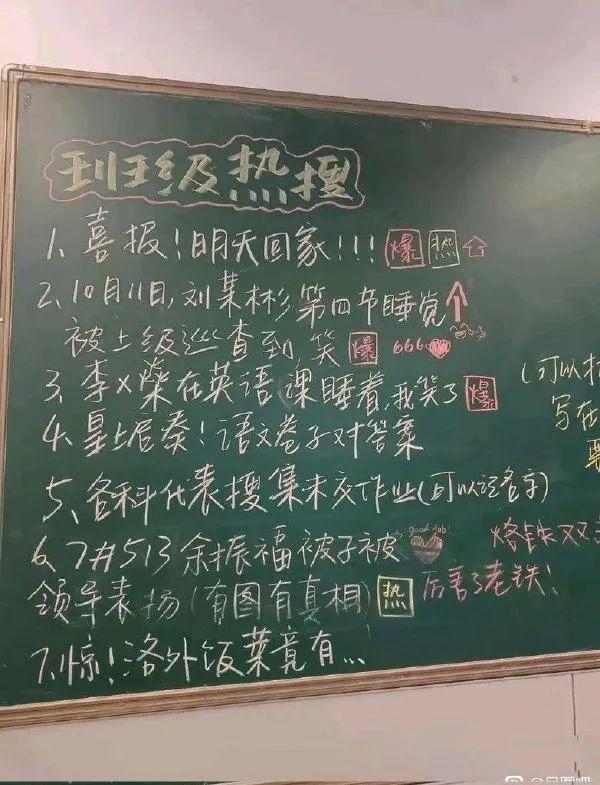 班级热搜
1、喜报！明天回家！！！ 爆 热
2、10月11日，刘某彬第四节睡觉
被上级巡查到，笑 爆 666
3、李X燊在英语课睡着，我笑了 爆
4、皇上启奏！语文卷子对答案
5、各科代表搜集未交作业(可以记名字)
6、7#513 余振福被子被 good job!
领导表扬(有图有真相) 热
7、惊！洛外饭菜竟有...
(可以
写在
烙铁双
厉害了老铁！